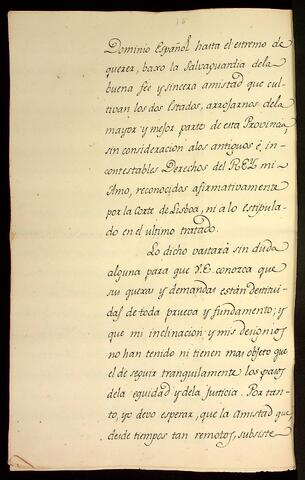 16
Dominio Español hasta el estremo de
querer, baxo la salvaguardia dela
buena feé y sincera amistad que cul-
tivan los dos Estados, arrojarnos dela
mayor y mejor parte de esta Provincia,
sin consideracion alos antiguos é in-
contestables Derechos del REY mi
Amo, reconocidos afirmativamente
por la Corte de Lisboa, ni alo estipula-
do en el ultimo tratado.
Lo dicho vastará sin duda
alguna para que V.E. conozca que
sus quexas y demandas están destitui-
das de toda prueva y fundamento; y
que mi inclinacion y mis designios
no han tenido ni tienen mas objeto que
el de seguir tranquilamente los pasos
dela equidad y dela Justicia. Por tan-
to, yo devo esperar, que la amistad que
desde tiempos tan remotos, subsiste